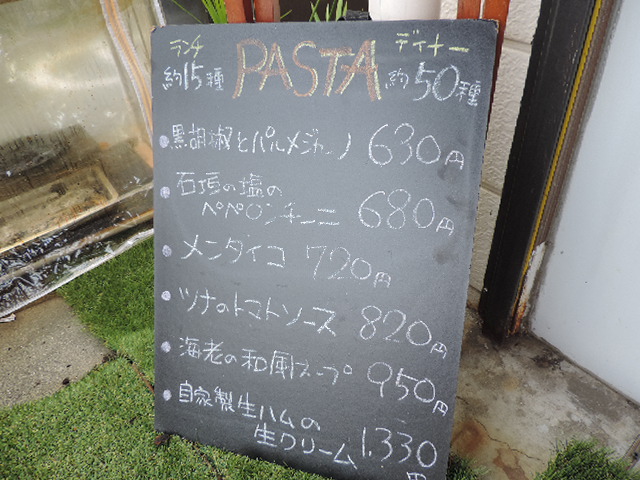 ランチ PASTA ディナー
約15種 約50種
黒胡椒とパルメジャーノ 630円
石垣の塩の
ペペロンチーニ 680円
メンタイコ 720円
ツナのトマトソース 820円
海老の和風スープ 950円
自家製生ハムの
生クリーム 1.330円